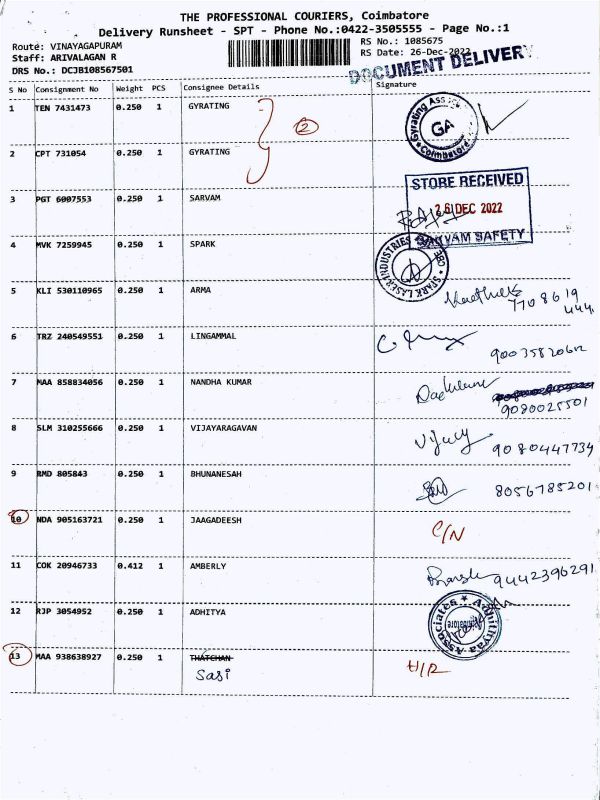 THE PROFESSIONAL COURIERS, Coimbatore
Delivery Runsheet - SPT - Phone No.:0422-3505555 - Page No.:1
Route: VINAYAGAPURAM RS No.: 1085675
Staff: ARIVALAGAN R RS Date: 26-Dec-2022
DRS No.: DCJB108567501 DOCUMENT DELIVERY
S No Consignment No Weight PCS Consignee Details Signature
1 TEN 7431473 0.250 1 GYRATING
2
Gyrating GA Coimbatore
2 CPT 731054 0.250 1 GYRATING
3 PGT 6007553 0.250 1 SARVAM
STORE RECEIVED
26 DEC 2022
SARVAM SAFETY
4 MVK 7259945 0.250 1 SPARK
SPARK LASER INDUSTRIES
5 KLI 530110965 0.250 1 ARMA
7708619
444
6 TRZ 240549551 0.250 1 LINGAMMAL
7 MAA 858834056 0.250 1 NANDHA KUMAR
9080025501
8 SLM 310255666 0.250 1 VIJAYARAGAVAN
Vijay 9080447734
9 RMD 805843 0.250 1 BHUNANESAH
8056785201
10 NDA 905163721 0.250 1 JAAGADEESH C/N
11 COK 20946733 0.412 1 AMBERLY
9442396291
12 RJP 3054952 0.250 1 ADHITYA
Adhithyaa Associates
13 MAA 938638927 0.250 1 THATCHAN
Sasi